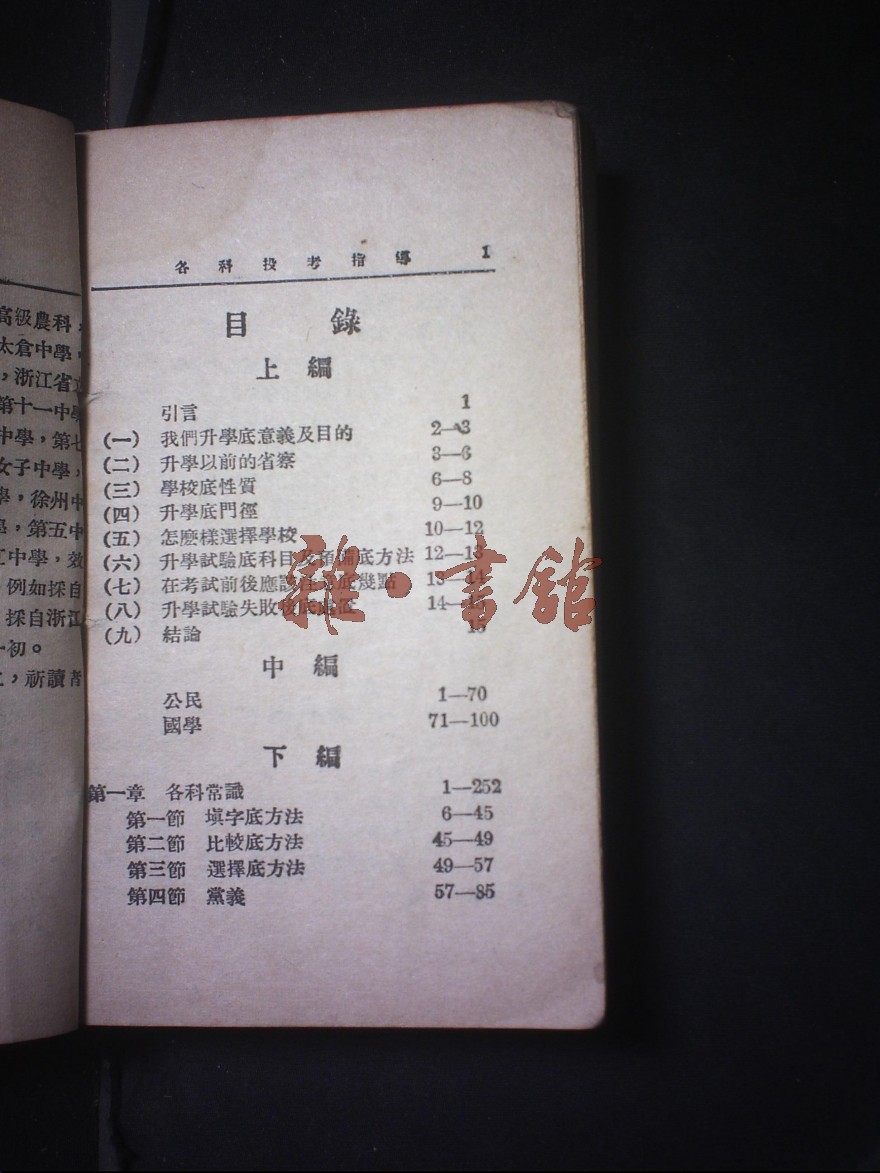 高級農科，
太倉中學，
，浙江省立
第十一中學
中學，第七
女子中學，
學，徐州中
，第五中
江中學，效
例如採自
採自浙江
初。
，祈讀者
各科投考指導 1
目錄
上編
引言 1
(一) 我們升學底意義及目的 2—3
(二) 升學以前的省察 3—6
(三) 學校底性質 6—8
(四) 升學底門徑 9—10
(五) 怎麽樣選擇學校 10—12
(六) 升學試驗底科目及預備底方法 12—13
(七) 在考試前後應該注意底幾點 13—14
(八) 升學試驗失敗後底處置 14—15
(九) 結論 15
中編
公民 1—70
國學 71—100
下編
第一章 各科常識 1—252
第一節 填字底方法 6—45
第二節 比較底方法 45—49
第三節 選擇底方法 49—57
第四節 黨義 57—85
雜·書舘